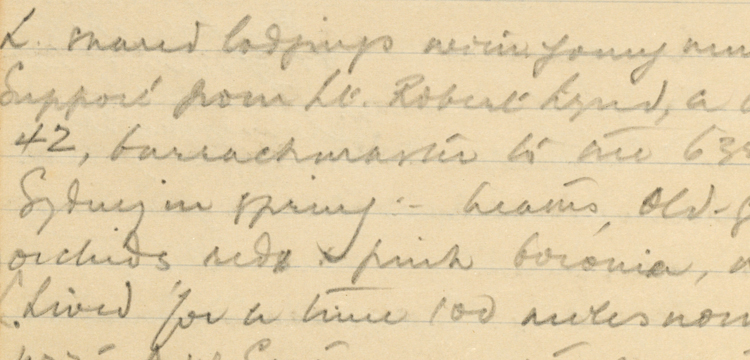 L. shared lodgings with young
Support from Lt. Robert Lynd, a
42, barrackmaster to the 63
Sydney in spring - heaths, old-
orchids reds & pink boronia,
L. Lived for a time 100 miles nor